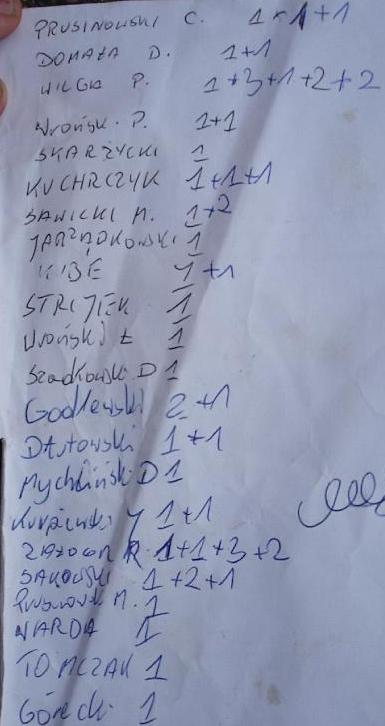 PRUSINOWSKI C. 1+1+1
DOMAŻA D. 1+1
WILGA P. 1+3+1+2+2
Wrońsk. P. 1+1
SKARŻYCKI 1
KUCHRCZYK 1+1+1
SAWICKI M. 1+2
JARZĄDKOWSKI 1
KIBE 1+1
STRYJEK 1
Wroński Ł 1
Szadkowski D 1
Godlewski 2+1
Dłutowski 1+1
Mychliński D 1
1+1
R. 1+1+3+2
SAKOWSKI 1+2+1
M. 1
WARDA 1
TOMCZAK 1
Górecki 1